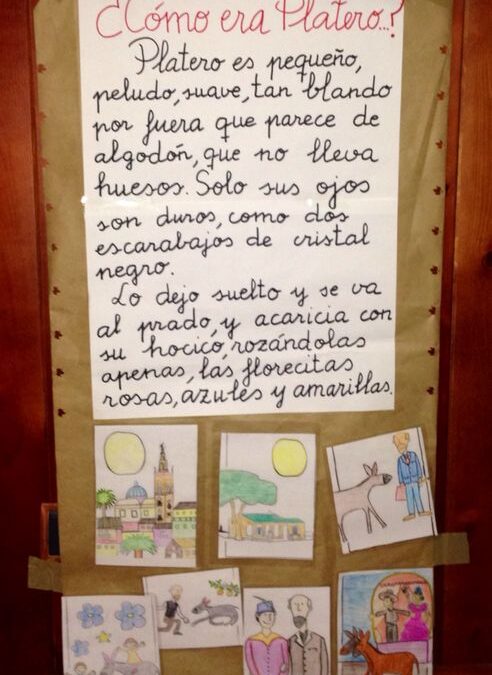 ¿Cómo era Platero...?
Platero es pequeño,
peludo, suave, tan blando
por fuera que parece de
algodón, que no lleva
huesos. Solo sus ojos
son duros, como dos
escarabajos de cristal
negro.
Lo dejo suelto y se va
al prado, y acaricia con
su hocico, rozándolas
apenas, las florecitas
rosas, azules y amarillas.